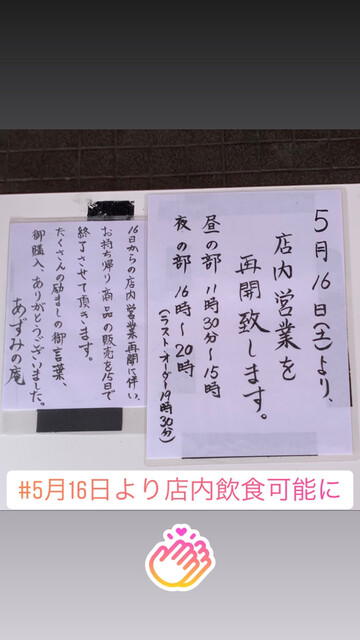 5月16日(土)より、
店内営業を
再開致します。
昼の部 11時30分〜15時
夜の部 16時〜20時
(ラストオーダー19時30分)
16日からの店内営業再開に伴い、
お持ち帰り商品の販売を15日で
終了させて頂きます。
たくさんの励ましの御言葉、
御購入、ありがとうございました。
あずみの庵
#5月16日より店内飲食可能に